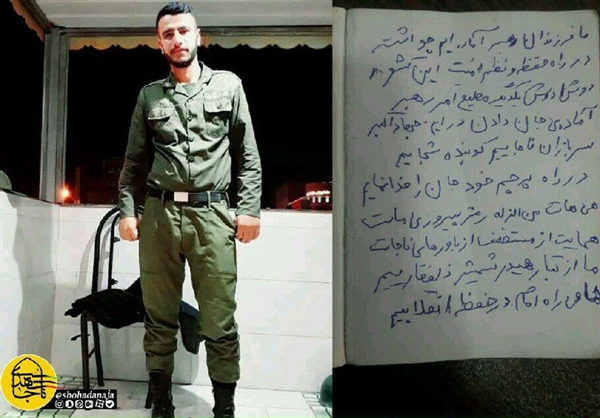 ما فرزندان رهبر آماده ایم چو ارتش
در راه حفظ و نظم امنیت این کشور
دوش ا دوش یکدیگر مطیع امر رهبر
آماده ی جان دادن در این جهاد اکبر
سربازان ناجاییم کوبنده شجاییم
در راه پرچم خود جان را فدا نماییم
هی هات من الذله رمز پیروزی ماست
حمایت از مستضعف از باورهای ناجاست
ما از تبار حیدر شمشیر ذلفقاریم
حامی راه امام در حفظ انقلابیم
@shohadanaja